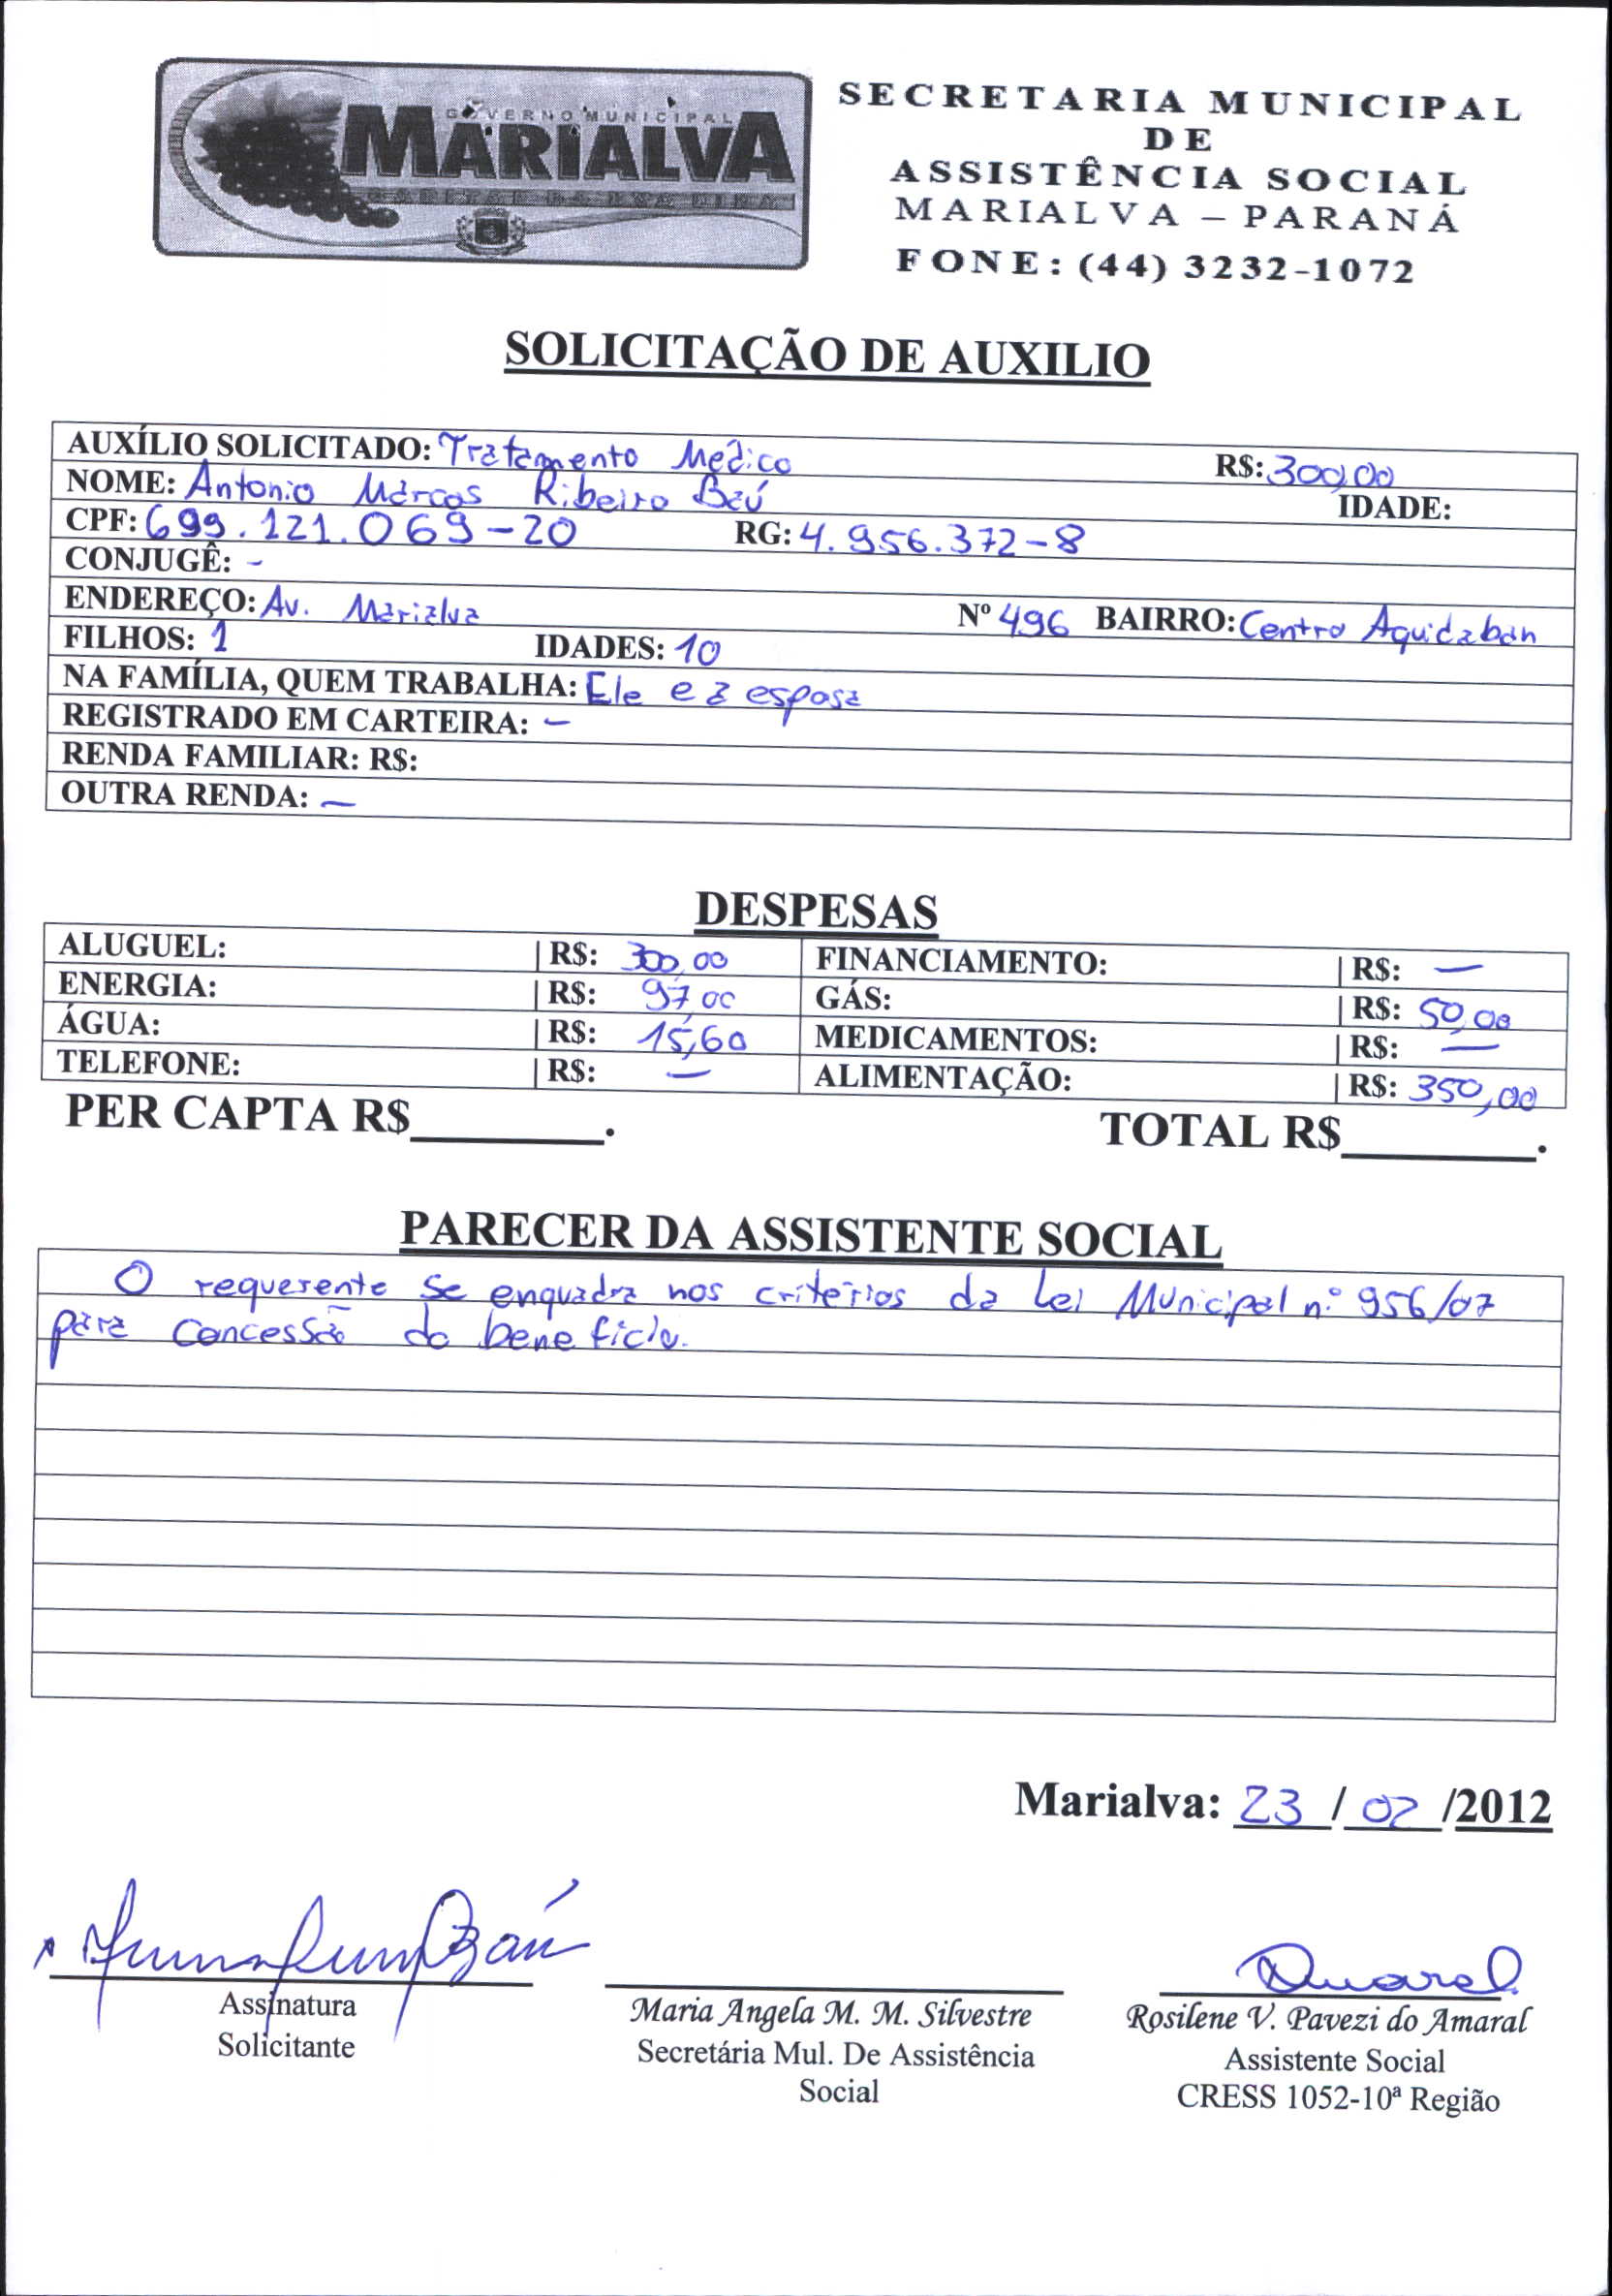 GOVERNO MUNICIPAL
MARIALVA
CAPITAL DA UVA FINA
SECRETARIA MUNICIPAL
DE
ASSISTÊNCIA SOCIAL
MARIALVA – PARANÁ
FONE: (44) 3232-1072
SOLICITAÇÃO DE AUXILIO
AUXÍLIO SOLICITADO: Tratamento Médico R$: 300,00
NOME: Antonio Marcos Ribeiro Baú IDADE:
CPF: 699.121.069-20 RG: 4.956.372-8
CONJUGÊ: -
ENDEREÇO: Av. Marialva Nº 496 BAIRRO: Centro Aquidaban
FILHOS: 1 IDADES: 10
NA FAMÍLIA, QUEM TRABALHA: Ele e a esposa
REGISTRADO EM CARTEIRA: -
RENDA FAMILIAR: R$:
OUTRA RENDA: -
DESPESAS
ALUGUEL: | R$: 300,00 FINANCIAMENTO: | R$: -
ENERGIA: | R$: 97,00 GÁS: | R$: 50,00
ÁGUA: | R$: 15,60 MEDICAMENTOS: | R$: -
TELEFONE: | R$: - ALIMENTAÇÃO: | R$: 350,00
PER CAPTA R$________. TOTAL R$________.
PARECER DA ASSISTENTE SOCIAL
O requerente se enquadra nos critérios da Lei Municipal n.º 956/07
para concessão do beneficio.
Marialva: 23 / 02 /2012
Baú Amaral
Assinatura
Solicitante
Maria Angela M. M. Silvestre
Secretária Mul. De Assistência
Social
Rosilene V. Pavezi do Amaral
Assistente Social
CRESS 1052-10ª Região